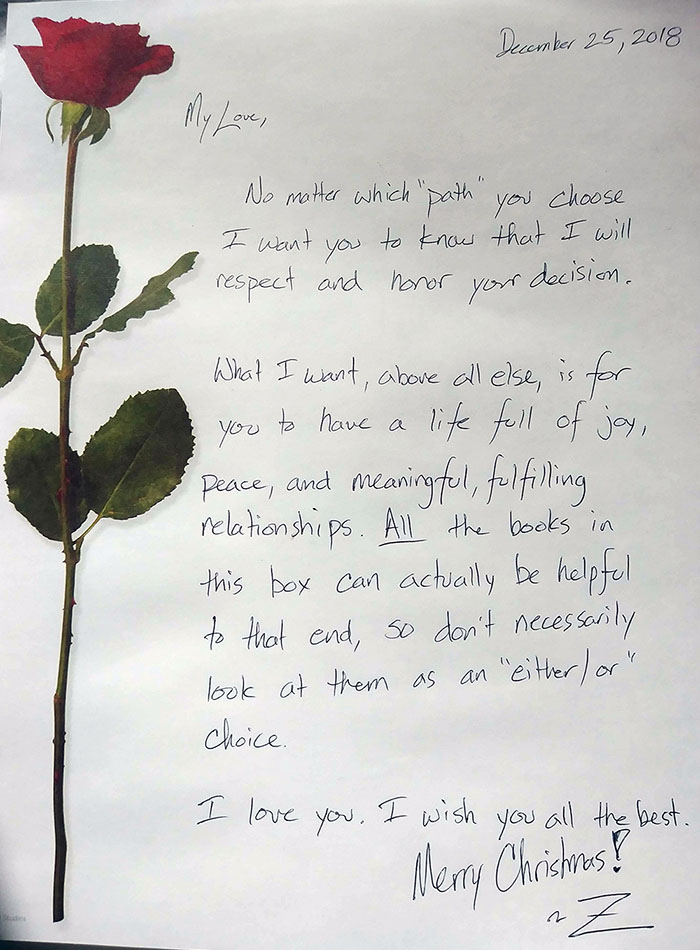 December 25, 2018
My Love,
No matter which "path" you choose
I want you to know that I will
respect and honor your decision.
What I want, above all else, is for
you to have a life full of joy,
peace, and meaningful, fulfilling
relationships. All the books in
this box can actually be helpful
to that end, so don't necessarily
look at them as an "either/or"
choice.
I love you. I wish you all the best.
Merry Christmas!
~ Z
Studios